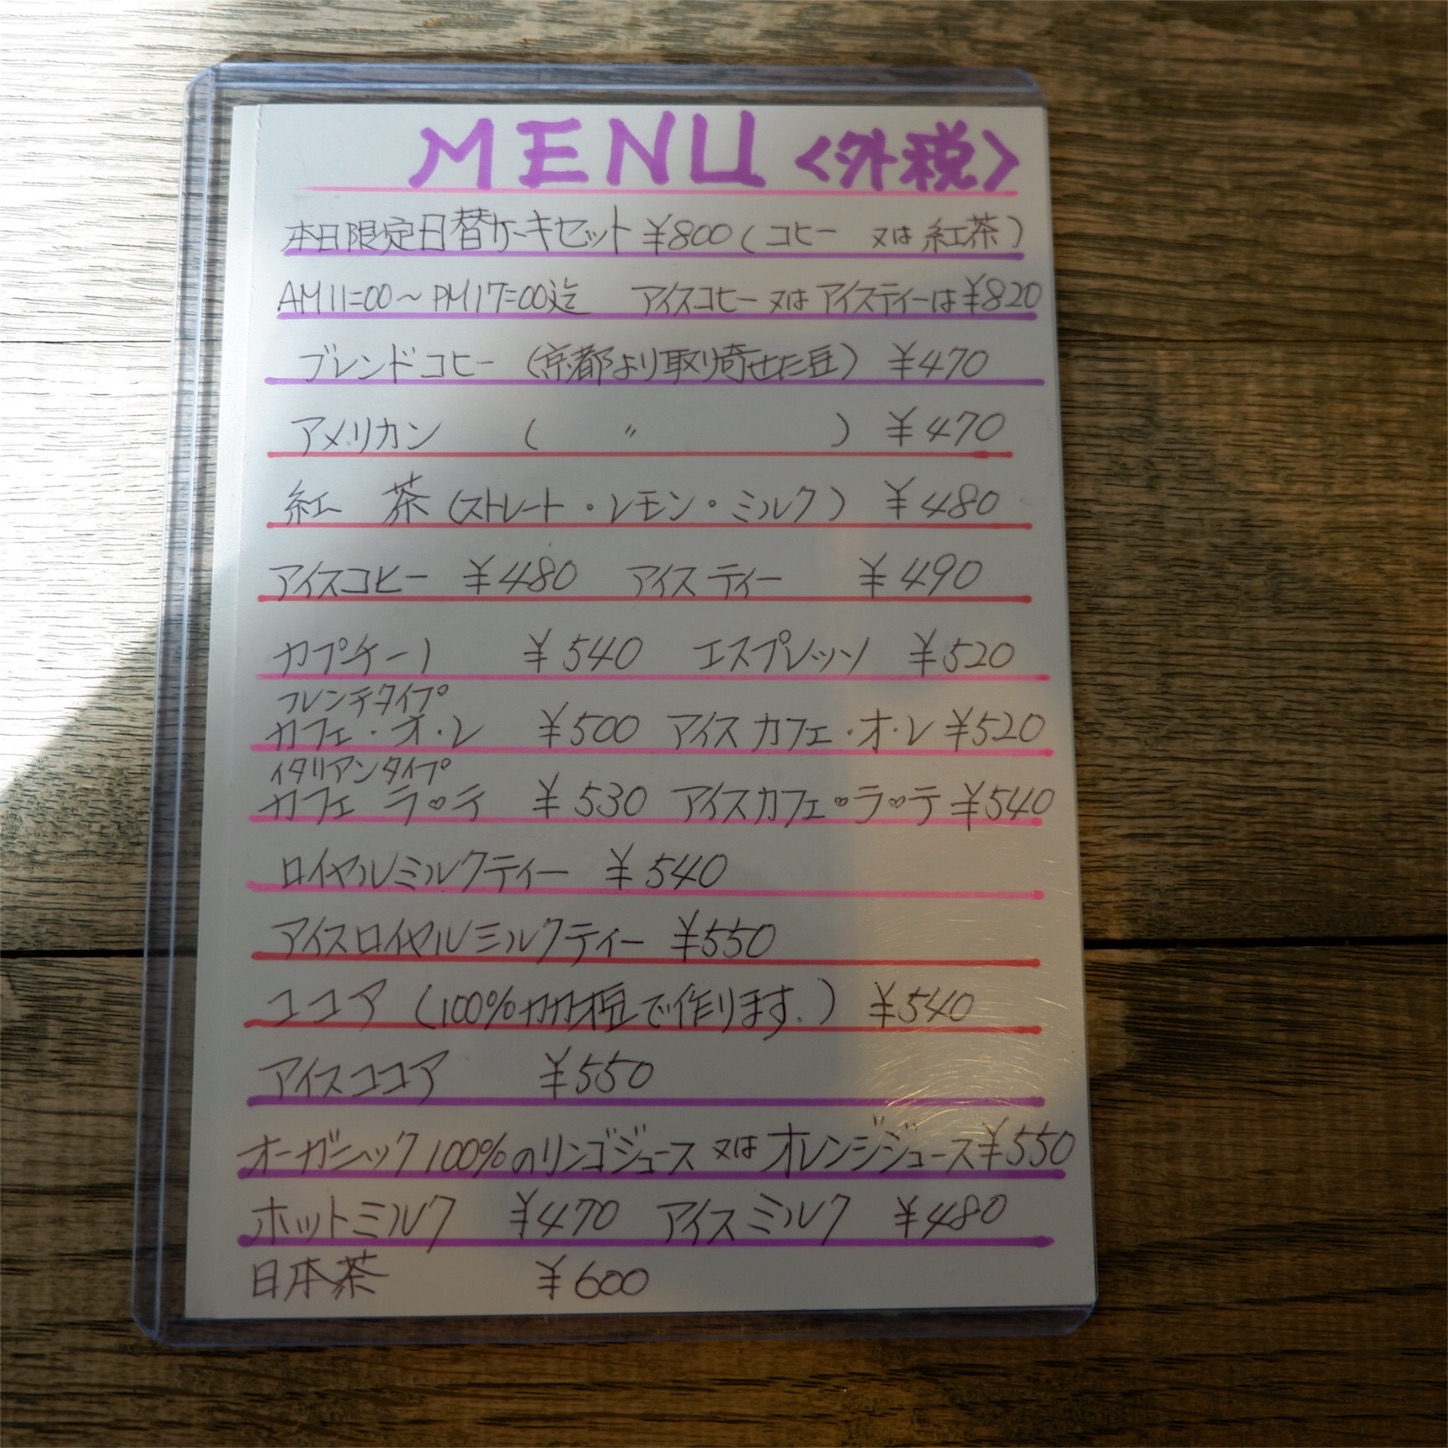 MENU〈外税〉
本日限定日替ケーキセット ¥800(コヒー 又は 紅茶)
AM11=00〜PM17=00迄 アイスコヒー 又は アイスティーは ¥820
ブレンドコヒー (京都より取り寄せた豆) ¥470
アメリカン ( 〃 ) ¥470
紅 茶 (ストレート・レモン・ミルク) ¥480
アイスコヒー ¥480 アイスティー ¥490
カプチーノ ¥540 エスプレッソ ¥520
フレンチタイプ
カフェ・オ・レ ¥500 アイスカフェ・オ・レ ¥520
イタリアンタイプ
カフェ ラ♡テ ¥530 アイスカフェ♡ラ♡テ ¥540
ロイヤルミルクティー ¥540
アイスロイヤルミルクティー ¥550
ココア (100%カカオ豆で作ります.) ¥540
アイスココア ¥550
オーガニック100%のリンゴジュース 又は オレンジジュース ¥550
ホットミルク ¥470 アイスミルク ¥480
日本茶 ¥600